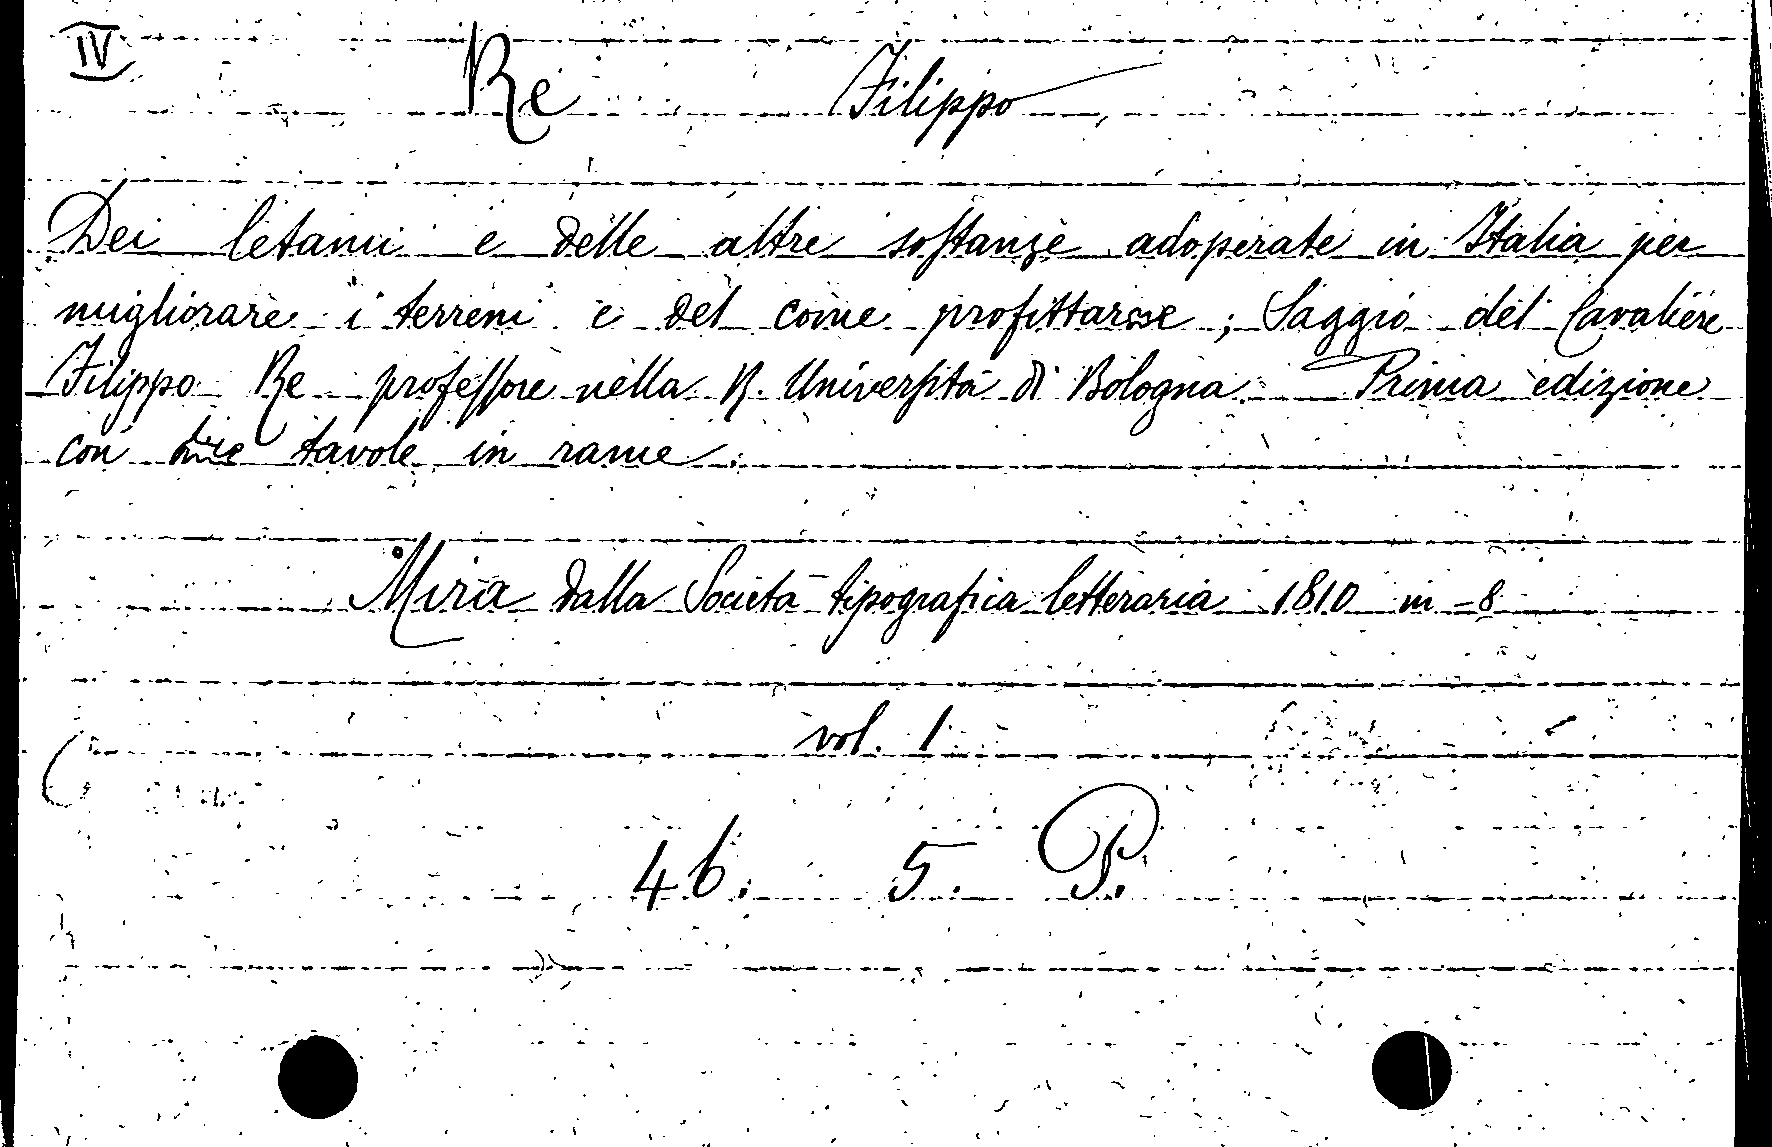 IV
Re Filippo
Dei letami e delle altre sostanze adoperate in Italia per
migliorare i terreni e del come profittarsse; Saggio del Cavaliere
Filippo Re professore nella R. Università di Bologna Prima edizione
con due tavole in rame.
Mira dalla Società tipografica letteraria 1810 in-8
vol. 1
46. 5. P.